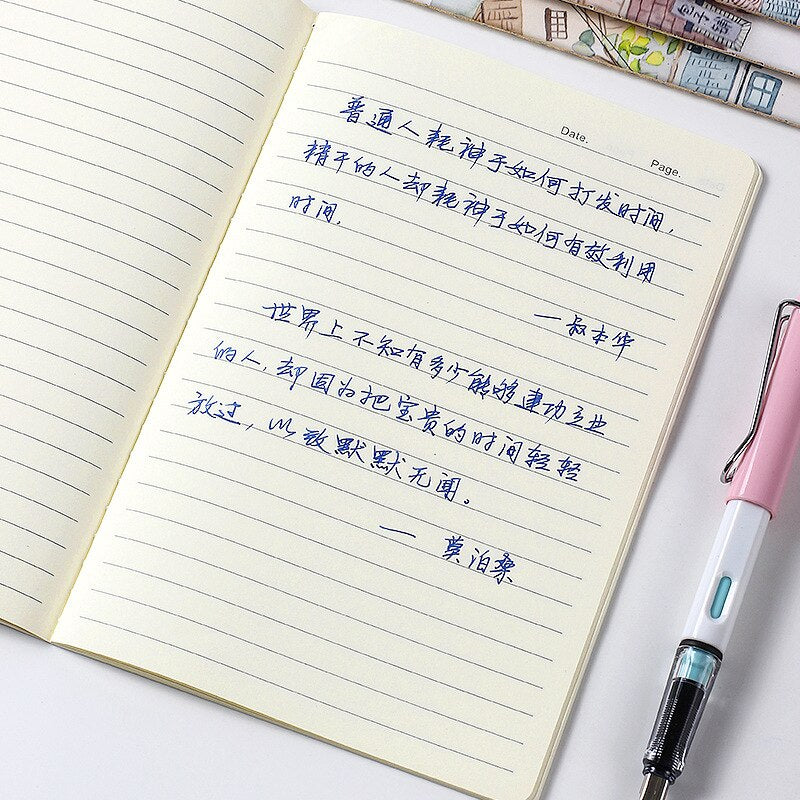 Date.
Page.
普通人耗神于如何打发时间,
精干的人却耗神于如何有效利用
时间.
—叔本华
世界上不知有多少能够建功立业
的人,却因为把宝贵的时间轻轻
放过,以致默默无闻。
— 莫泊桑